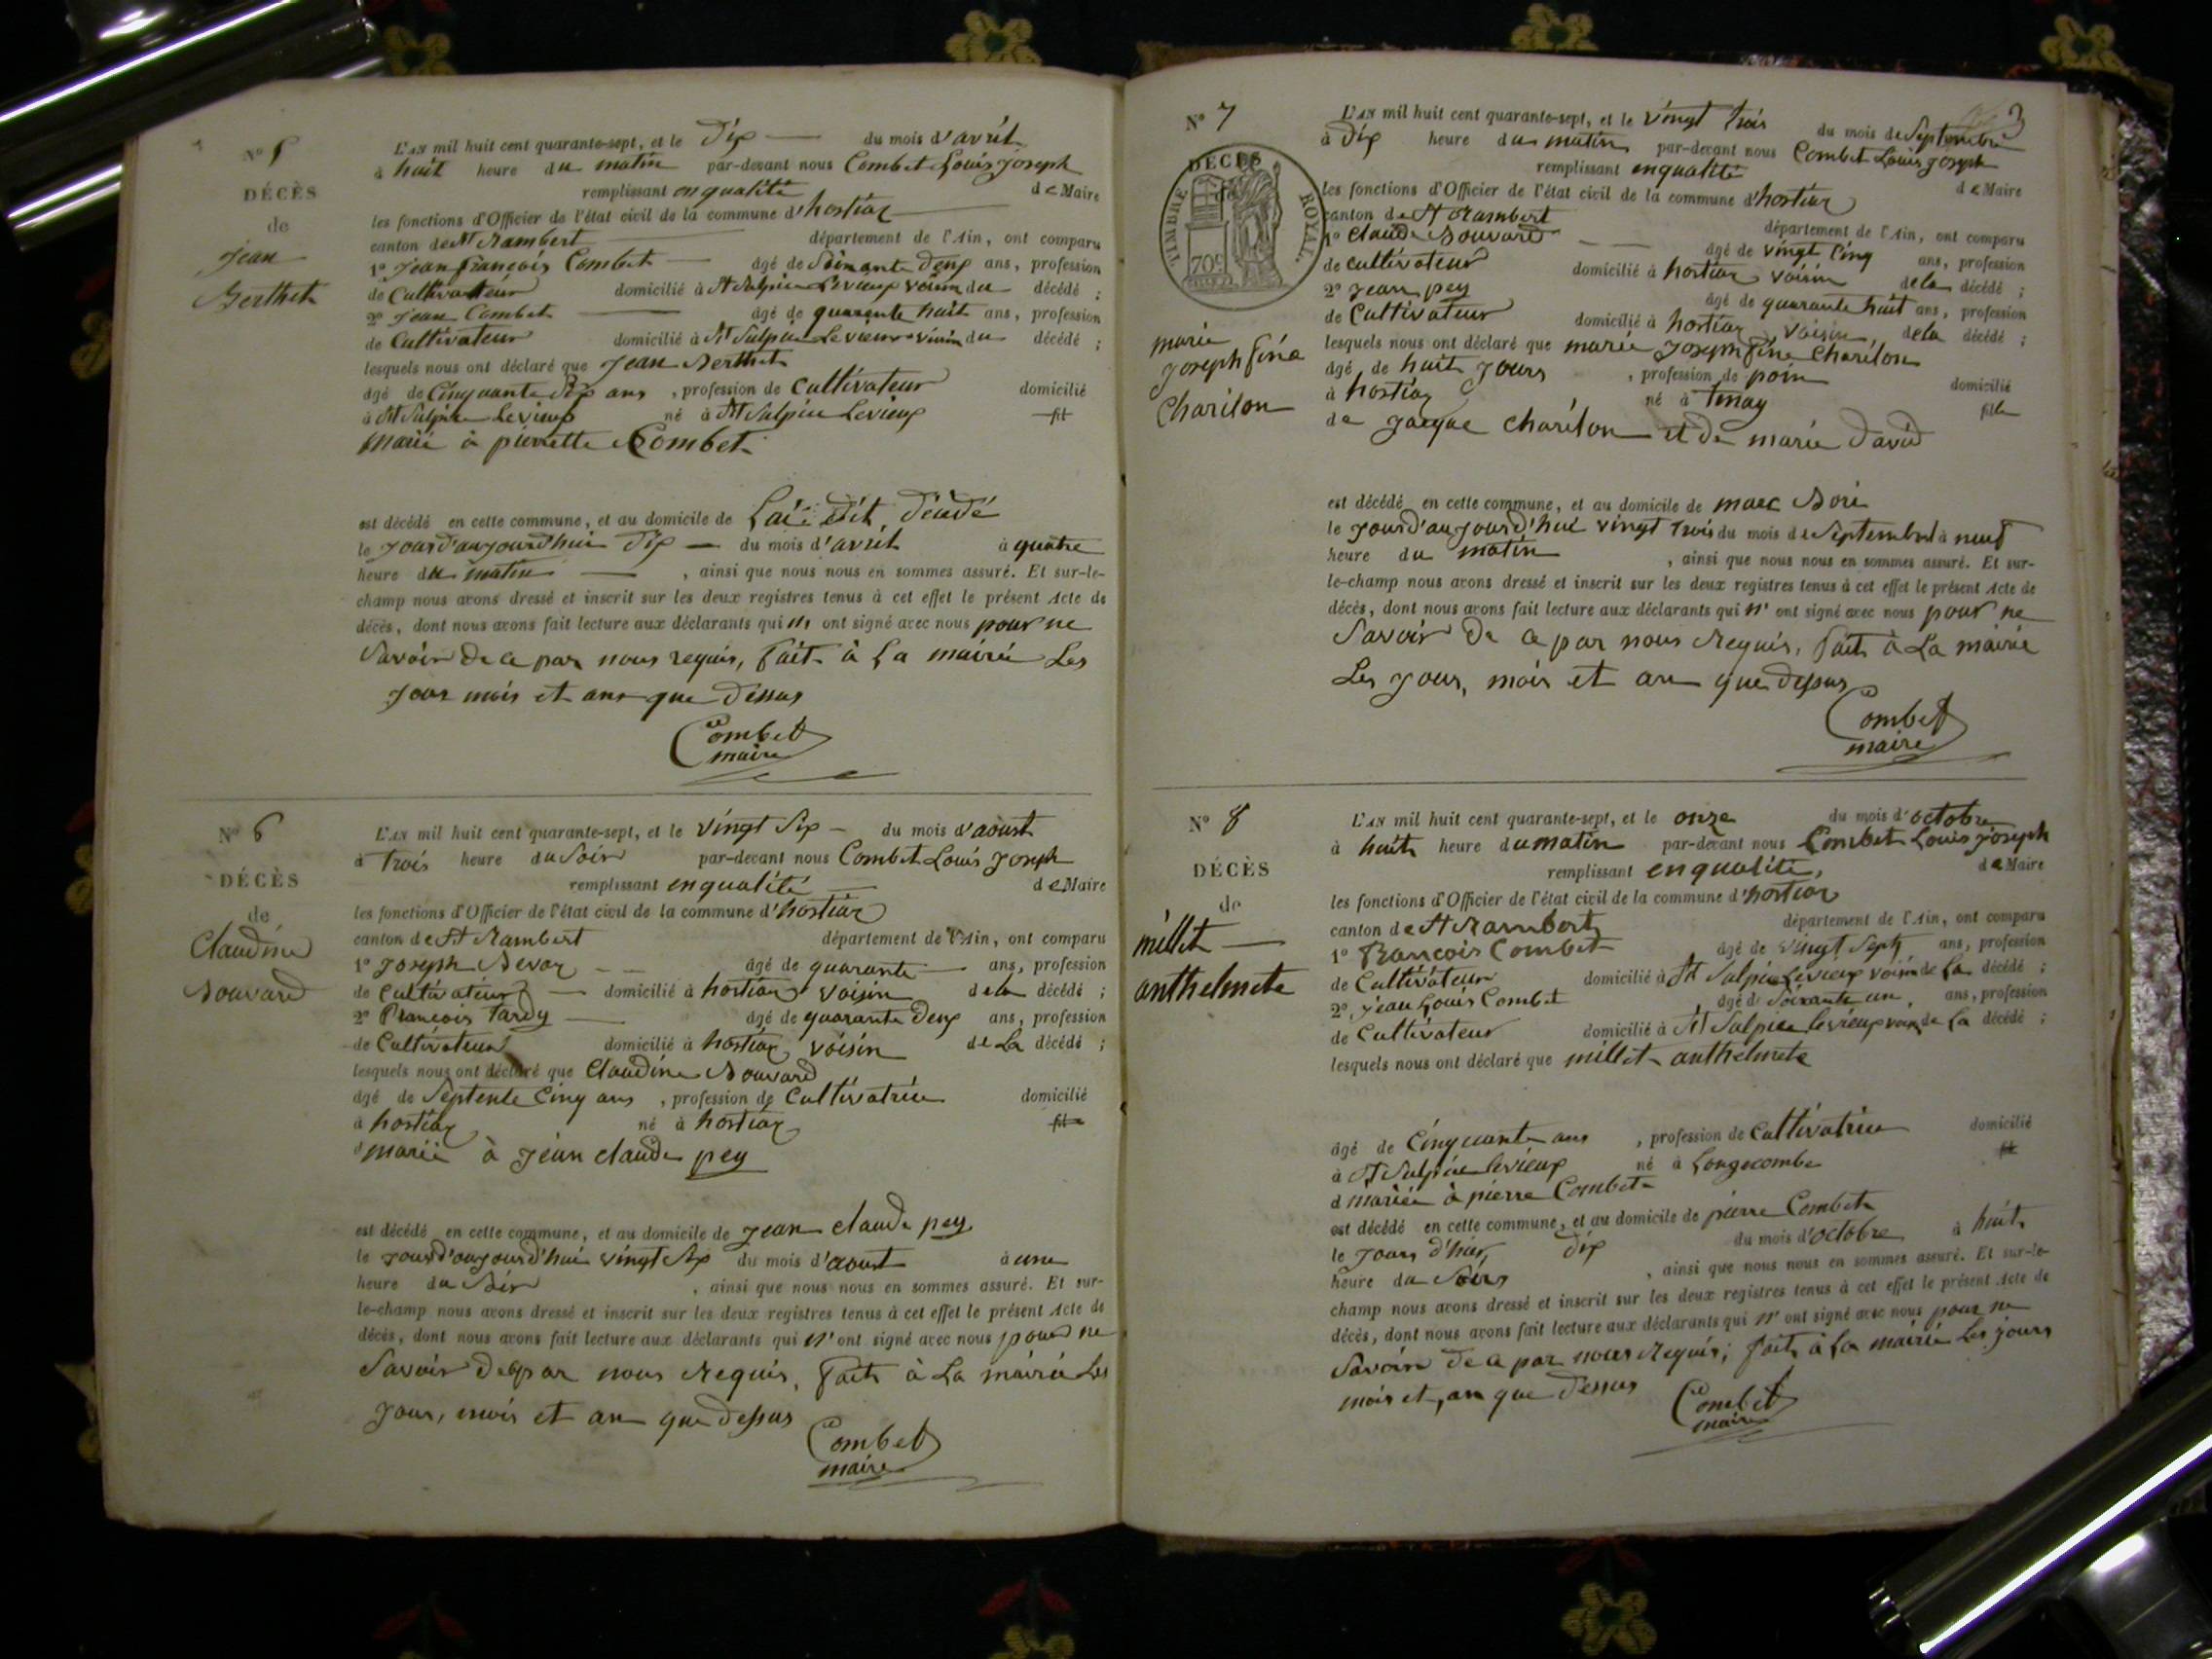 N° 5
DÉCÈS
de
jean
Berthet
L'AN mil huit cent quarante-sept, et le Dix du mois d'avril
à huit heure du matin par-devant nous Combet Louis joseph
remplissant en qualité de Maire
les fonctions d'Officier de l'état civil de la commune d'hostiaz
canton de St Rambert département de l'Ain, ont comparu
1° Jean françois Combet âgé de Soixante Deux ans, profession
de Cultivateur domicilié à St Sulpice Levieux voisin du décédé ;
2° Jean Combet âgé de quarante huit ans, profession
de Cultivateur domicilié à St Sulpice Levieux voisin du décédé ;
lesquels nous ont déclaré que Jean Berthet
âgé de Cinquante Six ans , profession de Cultivateur domicilié
à St Sulpice Levieux né à St Sulpice Levieux fil
marié à pierrette Combet
est décédé en cette commune, et au domicile de Lui dit, Décédé
le jourd'aujourdhui Dix du mois d'avril à quatre
heure du matin , ainsi que nous nous en sommes assuré. Et sur-le-
champ nous avons dressé et inscrit sur les deux registres tenus à cet effet le présent Acte de
décès, dont nous avons fait lecture aux déclarants qui n' ont signé avec nous pour ne
Savoir De ce par nous requis, fait à La mairie Les
jour mois et an que Dessus
Combet
maire
N° 6
DÉCÈS
de
Claudine
Bouvard
L'AN mil huit cent quarante-sept, et le vingt Six du mois d'aoust
à trois heure du Soir par-devant nous Combet Louis Joseph
remplissant en qualité de Maire
les fonctions d'Officier de l'état civil de la commune d'hostiaz
canton de St Rambert département de l'Ain, ont comparu
1° Joseph Bevoz âgé de quarante ans, profession
de Cultivateur domicilié à hostiaz voisin de la décédé ;
2° François Tardy âgé de quarante Deux ans, profession
de Cultivateur domicilié à hostiaz voisin de La décédé ;
lesquels nous ont déclaré que Claudine Bouvard
âgé de Septente Cinq ans , profession de Cultivatrice domicilié
à hostiaz né à hostiaz fil
mariée à jean claude pey
est décédé en cette commune, et au domicile de jean claude pey
le jourd'aujourd'hui vingt Six du mois d'aoust à une
heure du Soir , ainsi que nous nous en sommes assuré. Et sur-
le-champ nous avons dressé et inscrit sur les deux registres tenus à cet effet le présent Acte de
décès, dont nous avons fait lecture aux déclarants qui n' ont signé avec nous pour ne
Savoir De ce par nous Requis, fait à La mairie Les
jour, mois et an que Dessus
Combet
maire
3
N° 7
DÉCÈS
de
TIMBRE ROYAL.
70c
marie
joseph fine
Charilon
L'AN mil huit cent quarante-sept, et le vingt trois du mois de Septembre
à Dix heure du matin par-devant nous Combet Louis joseph
remplissant en qualité de Maire
les fonctions d'Officier de l'état civil de la commune d'hostiaz
canton de St Rambert département de l'Ain, ont comparu
1° Claude Bouvard âgé de vingt Cinq ans, profession
de cultivateur domicilié à hostiaz voisin de la décédé ;
2° Jean pey âgé de quarante huit ans, profession
de Cultivateur domicilié à hostiaz voisin, de la décédé ;
lesquels nous ont déclaré que marie joseph fine Charilon
âgé de huit jours , profession de poin domicilié
à hostiaz né à tenay fille
de jacque charilon et De marie David
est décédé en cette commune, et au domicile de marc
le jourd'aujourd'hui vingt trois du mois de Septembre à neuf
heure du matin , ainsi que nous nous en sommes assuré. Et sur-
le-champ nous avons dressé et inscrit sur les deux registres tenus à cet effet le présent Acte de
décès, dont nous avons fait lecture aux déclarants qui n' ont signé avec nous pour ne
Savoir De ce par nous Requis, fait à La mairie
Les jour, mois et an que Dessus
Combet
maire
N° 8
DÉCÈS
de
millet
anthelmete
L'AN mil huit cent quarante-sept, et le onze du mois d'octobre
à huit heure du matin par-devant nous Combet Louis joseph
remplissant en qualité, de Maire
les fonctions d'Officier de l'état civil de la commune d'hostiaz
canton de St Rambert département de l'Ain, ont comparu
1° François Combet âgé de vingt Sept ans, profession
de Cultivateur domicilié à St Sulpice Levieux voisin de La décédé ;
2° jean Louis Combet âgé de Soixante un, ans, profession
de Cultivateur domicilié à St Sulpice levieux voisin de La décédé ;
lesquels nous ont déclaré que millet anthelmete
âgé de Cinquante ans , profession de Cultivatrice domicilié
à St Sulpice levieux né à Longecombe fil
d mariée à pierre Combet
est décédé en cette commune, et au domicile de pierre Combet
le jour d'hier, dix du mois d'octobre à huit
heure du Soir , ainsi que nous nous en sommes assuré. Et sur-le-
champ nous avons dressé et inscrit sur les deux registres tenus à cet effet le présent Acte de
décès, dont nous avons fait lecture aux déclarants qui n' ont signé avec nous pour ne
Savoir de ce par nous Requis; fait à La mairie Les jours
mois et, an que Dessus
Combet
maire